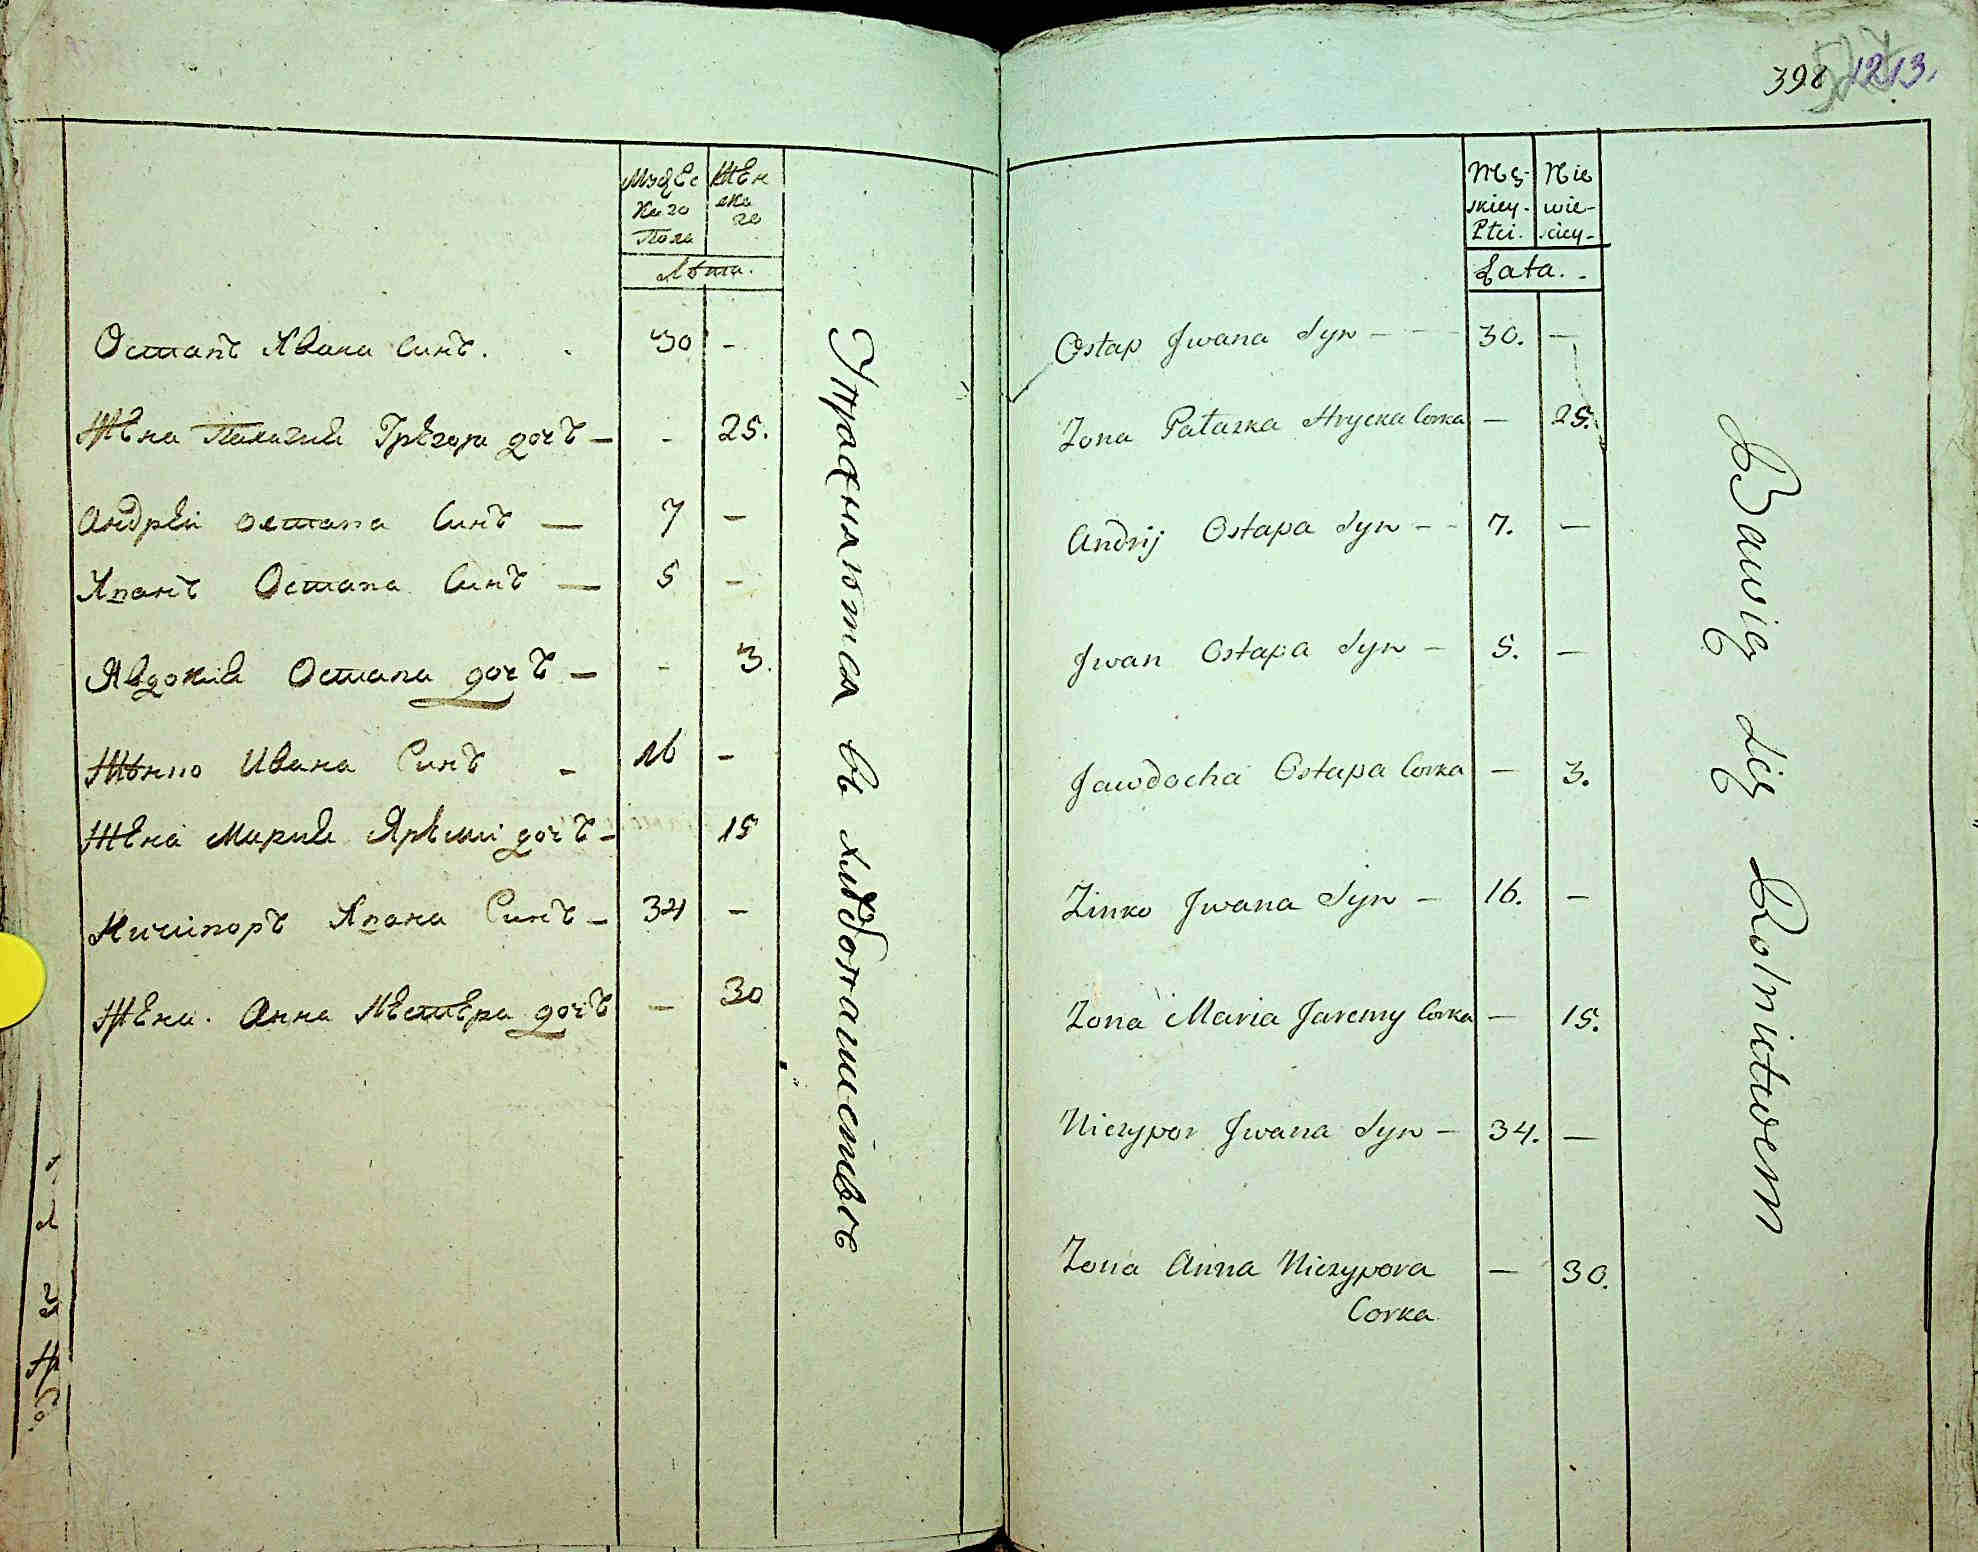 Мужес
каго
Пола
Жен
ска
го
Лѣта.
Остапъ Ивана Синъ. 30 -
Жена Палагия Грегори дочъ - - 25.
Андрей Остапа Синъ — 7 —
Иванъ Остапа Синъ — 5 —
Явдокия Остапа дочъ — - 3.
Ивана Синъ - 16 -
Жена Мария Яреми дочъ - 15
Ничипоръ Ивана Синъ - 34 —
Жена. Анна дочъ — 30
Упражняются въ хлебопашествѣ
398 1213.
Męz-
skiey-
Płci.
Nie
wie-
sciey-
Lata. -
Ostap Jwana Syn - - - 30. —
Zona Pałazka Hrycka Corka — 25.
Andrij Ostapa Syn - - 7. —
Jwan Ostapa Syn - 5. —
Jawdocha Ostapa Corka — 3.
Zinko Jwana Syn - 16. —
Zona Maria Jaremy Corka — 15.
Niczypor Jwana Syn - 34. —
Zona Anna Niczypora — 30.
Corka
Bawią Się Rolnictwem